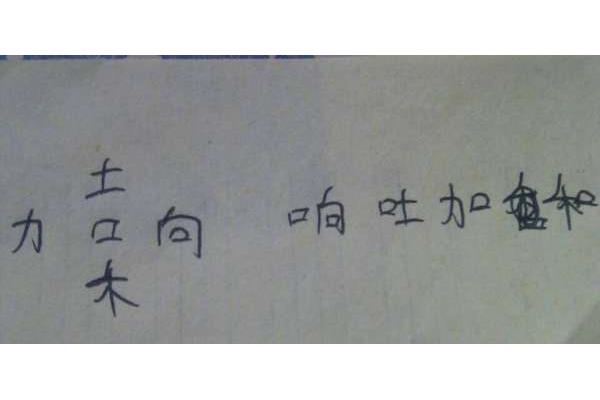 土
力 口 向 响 吐 加 和
木